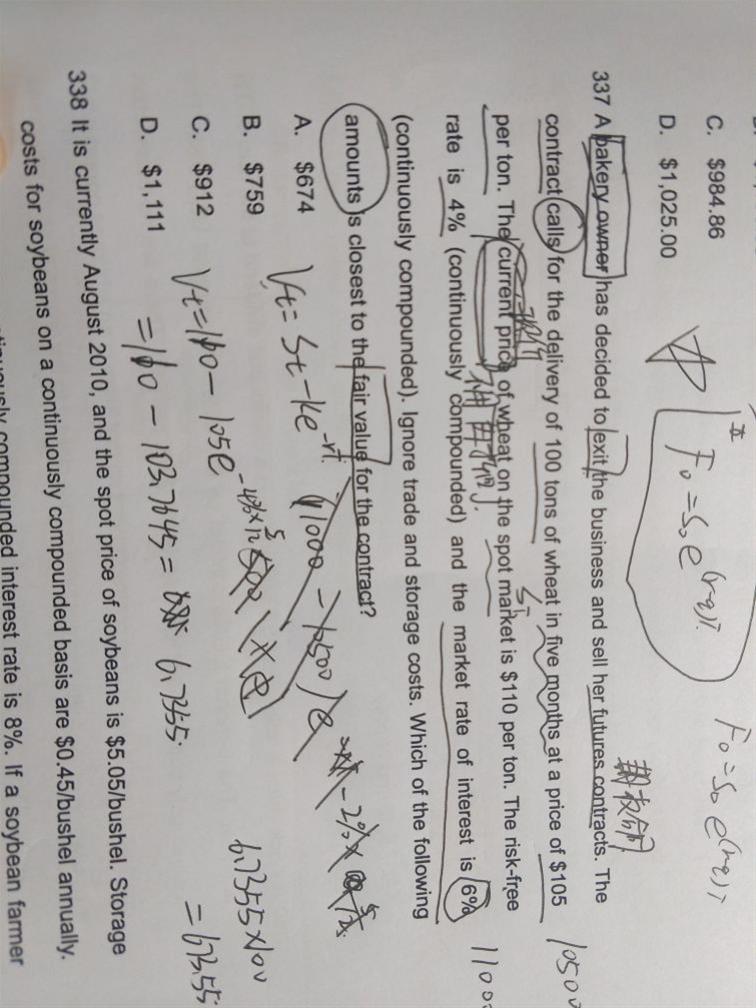 C. $984.86
D. $1,025.00
F₀=S₀e^(r-q)T
F₀=S₀e^(r-q)T
337 A bakery owner has decided to exit the business and sell her futures contracts. The
contract calls for the delivery of 100 tons of wheat in five months at a price of $105
10500
per ton. The current price of wheat on the spot market is $110 per ton. The risk-free
rate is 4% (continuously compounded) and the market rate of interest is 6%
(continuously compounded). Ignore trade and storage costs. Which of the following
amounts is closest to the fair value for the contract?
A. $674
B. $759
C. $912
D. $1,111
Vt=St-ke^-rt
Vt=110-105e
=110-103.2645=
6.7355.
6.7355×100
=673.55
338 It is currently August 2010, and the spot price of soybeans is $5.05/bushel. Storage
costs for soybeans on a continuously compounded basis are $0.45/bushel annually.
compounded interest rate is 8%. If a soybean farmer